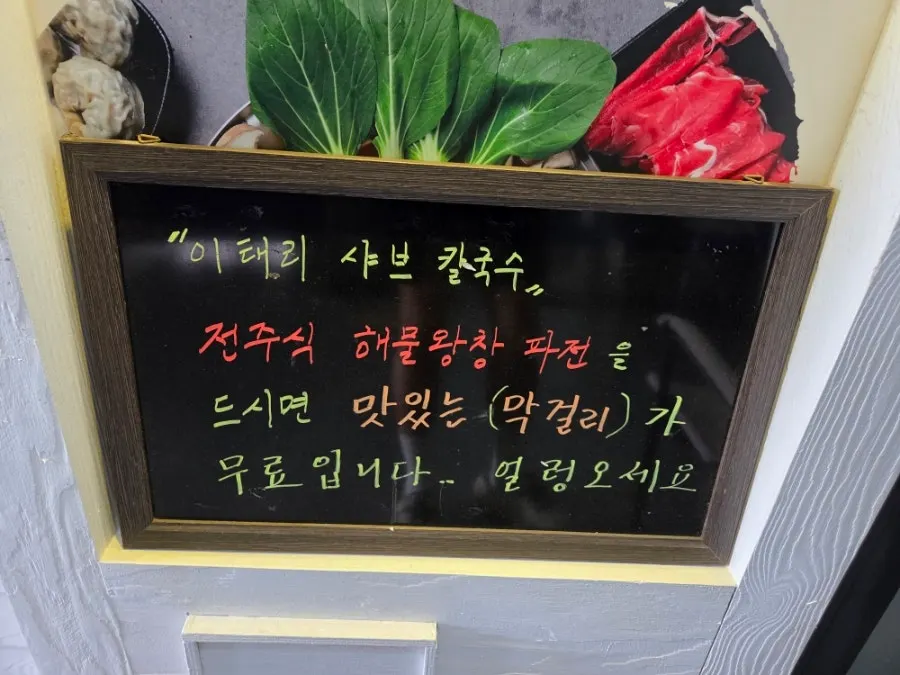 "이태리 샤브 칼국수"
전주식 해물왕창 파전을
드시면 맛있는 (막걸리)가
무료입니다.. 얼렁오세요